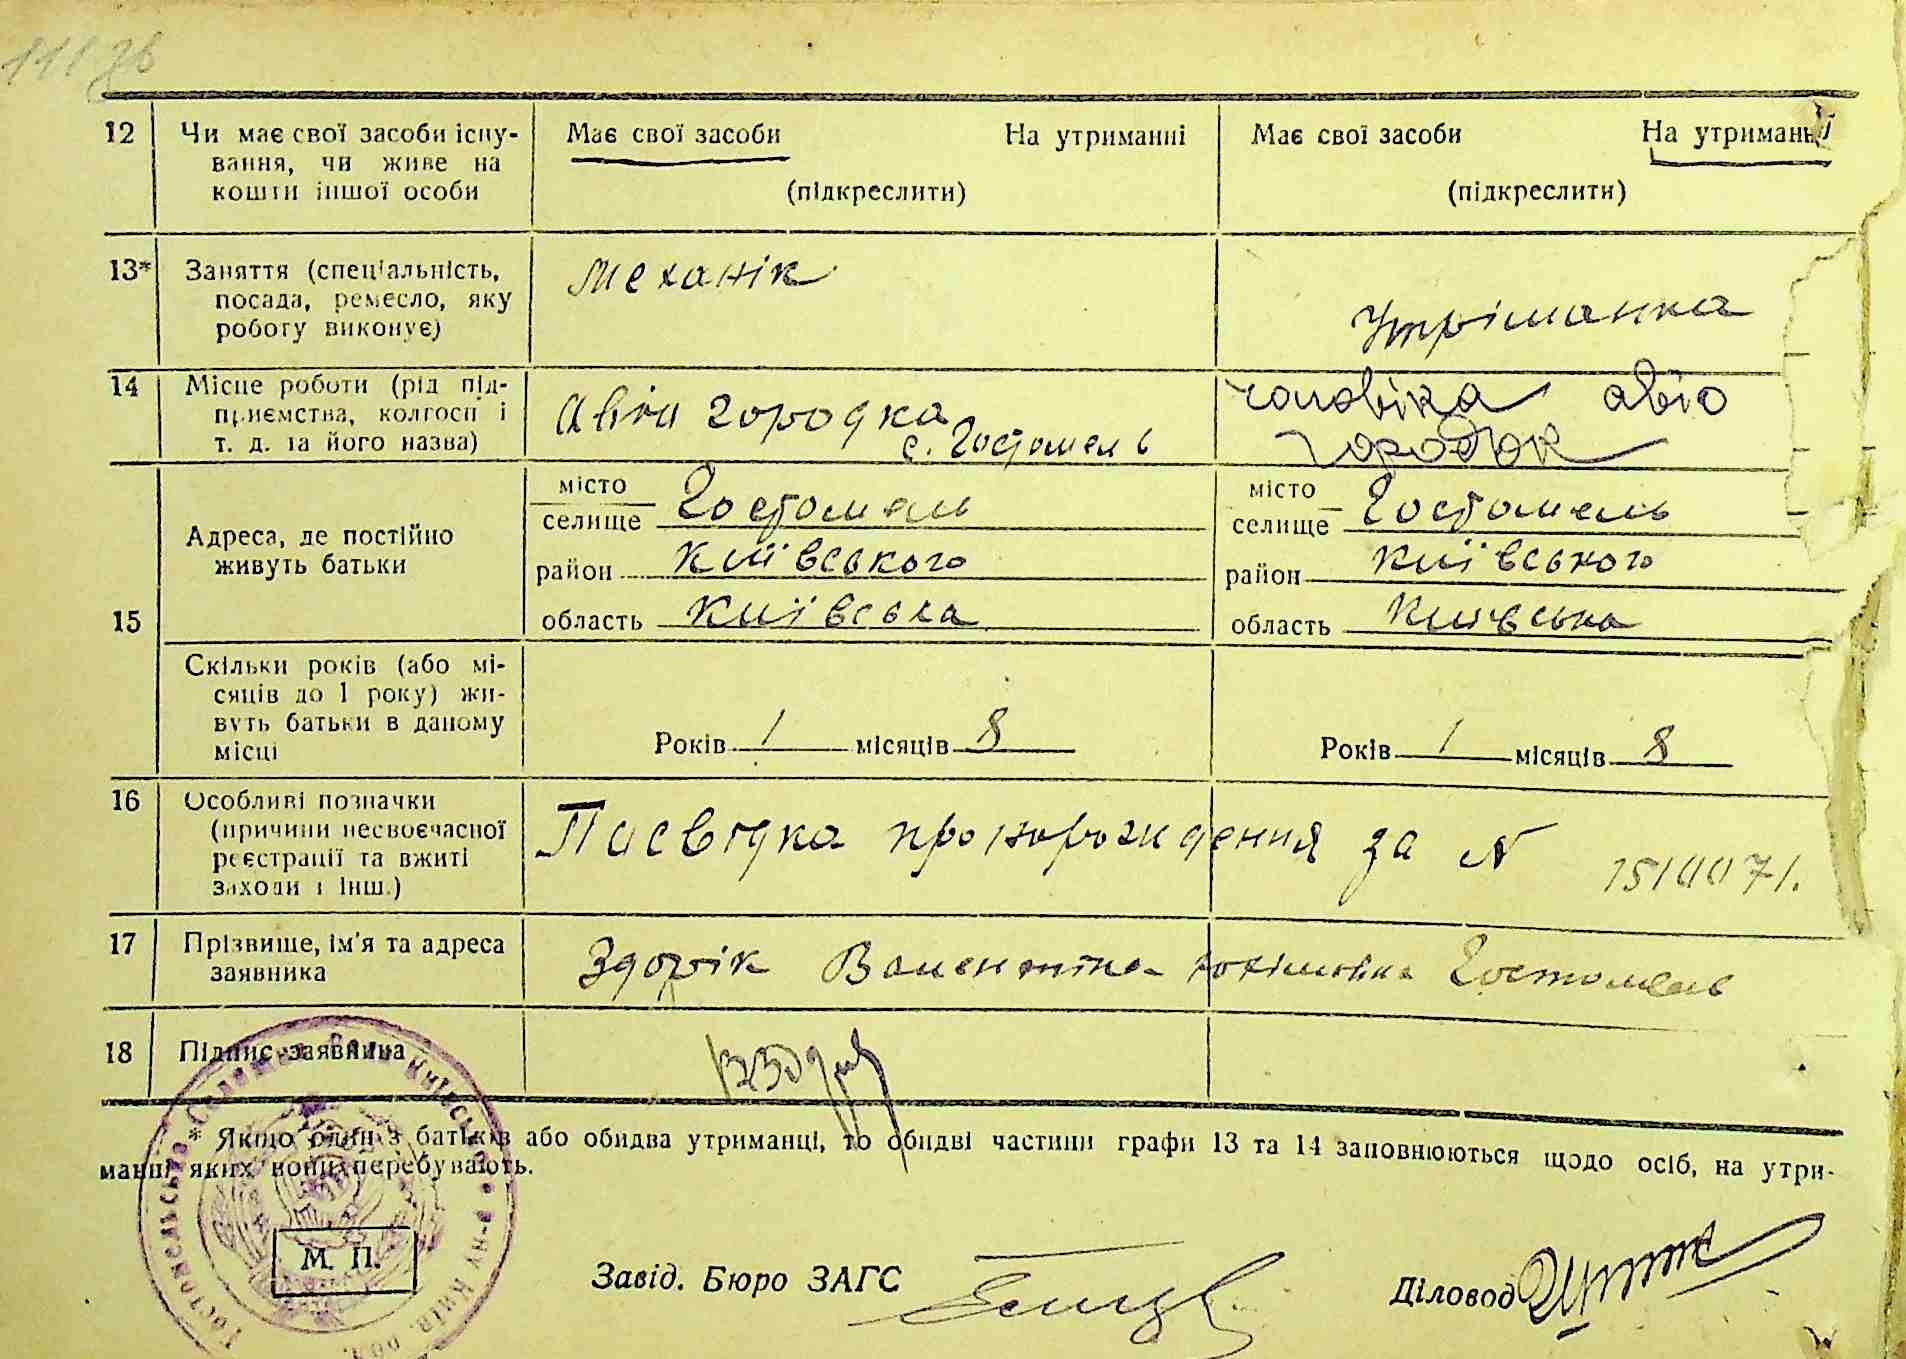 12 Чи має свої засоби існу- Має свої засоби На утриманні Має свої засоби На утриманні
вання, чи живе на
кошти іншої особи (підкреслити) (підкреслити)
13* Заняття (спеціальність, Механік
посада, ремесло, яку Утріманка
роботу виконує)
14 Місце роботи (рід під- чоловіка авіо
приємства, колгосп і Авіа городка
т. д. та його назва) с. Гостомель городок
місто Гостомель місто Гостомель
селище селище
Адреса, де постійно
живуть батьки район Київського район Київського
15 область Київська область Київська
Скільки років (або мі-
сяців до 1 року) жи-
вуть батьки в даному Років 1 місяців 8 Років 1 місяців 8
місці
16 Особливі позначки
(причини несвоєчасної Посвідка про народження за N 1510071.
реєстрації та вжиті
заходи і інш.)
17 Прізвище, ім'я та адреса Здорік Валентіна Гостомель
заявника
18 Підпис заявника
* Якщо один з батьків або обидва утриманці, то обидві частини графи 13 та 14 заповнюються щодо осіб, на утри-
манні яких вони перебувають.
М. П.
Завід. Бюро ЗАГС Діловод